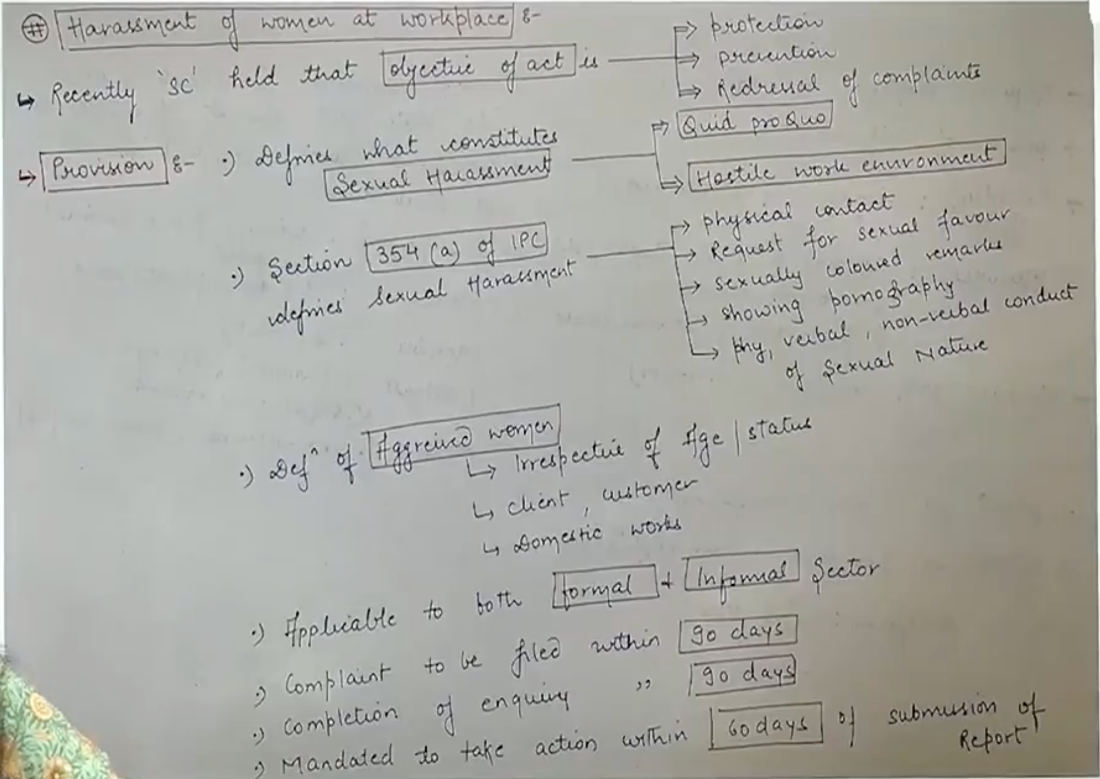 # Harassment of women at workplace :-
↳ Recently 'SC' held that objective of act is
→ protection
→ prevention
→ Redressal of complaints
↳ Provision :- •) Defines what constitutes
Sexual Harassment
→ Quid pro Quo
→ Hostile work environment
•) Section 354 (a) of IPC
defines Sexual Harassment
→ physical contact
→ Request for sexual favour
→ sexually coloured remarks
→ showing pornography
→ phy, verbal, non-verbal conduct
of Sexual Nature
•) Defⁿ of Aggreived women
↳ Irrespective of Age / status
↳ client, customer
↳ Domestic works
•) Applicable to both formal + Informal Sector
•) Complaint to be filed within 90 days
•) Completion of enquiry ,, 90 days
•) Mandated to take action within 60 days of submission of
Report